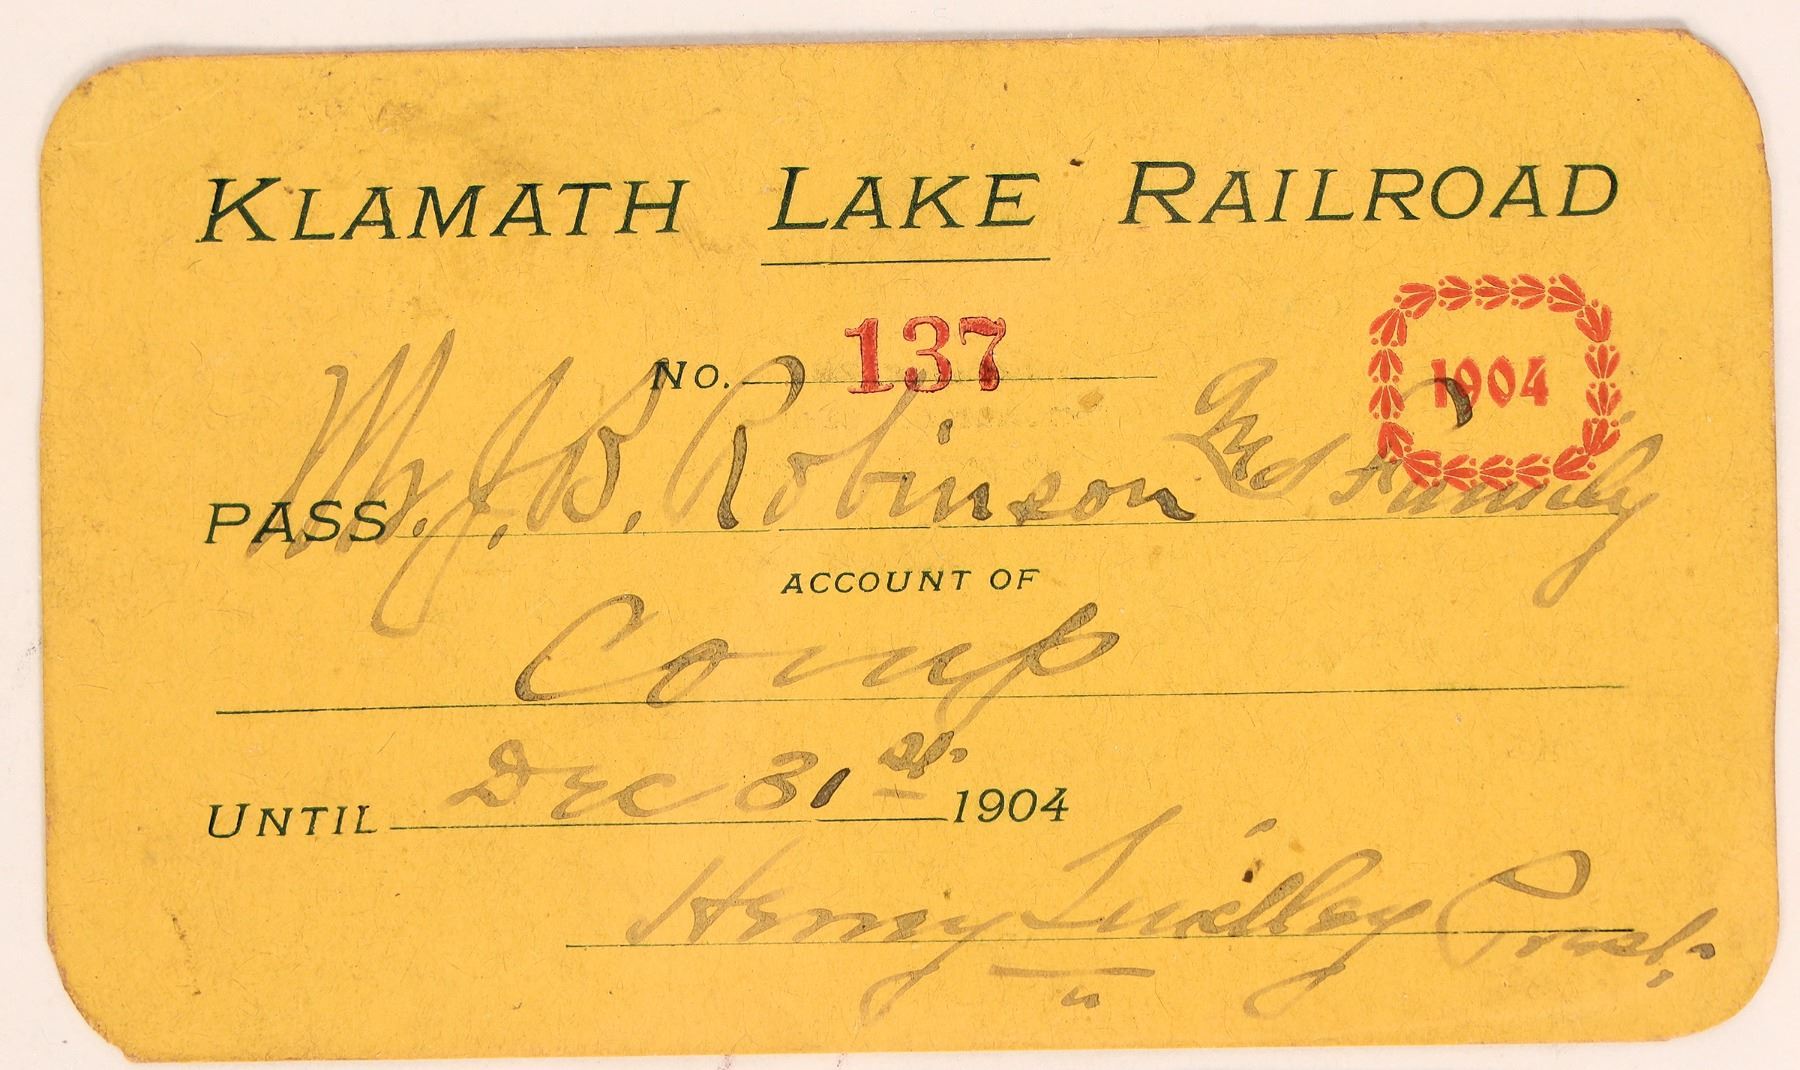 KLAMATH LAKE RAILROAD
No. 137
1904
PASS M. J. B. Robinson and Family
ACCOUNT OF
Comp
UNTIL Dec 31st 1904
Henry Lindley Prest.